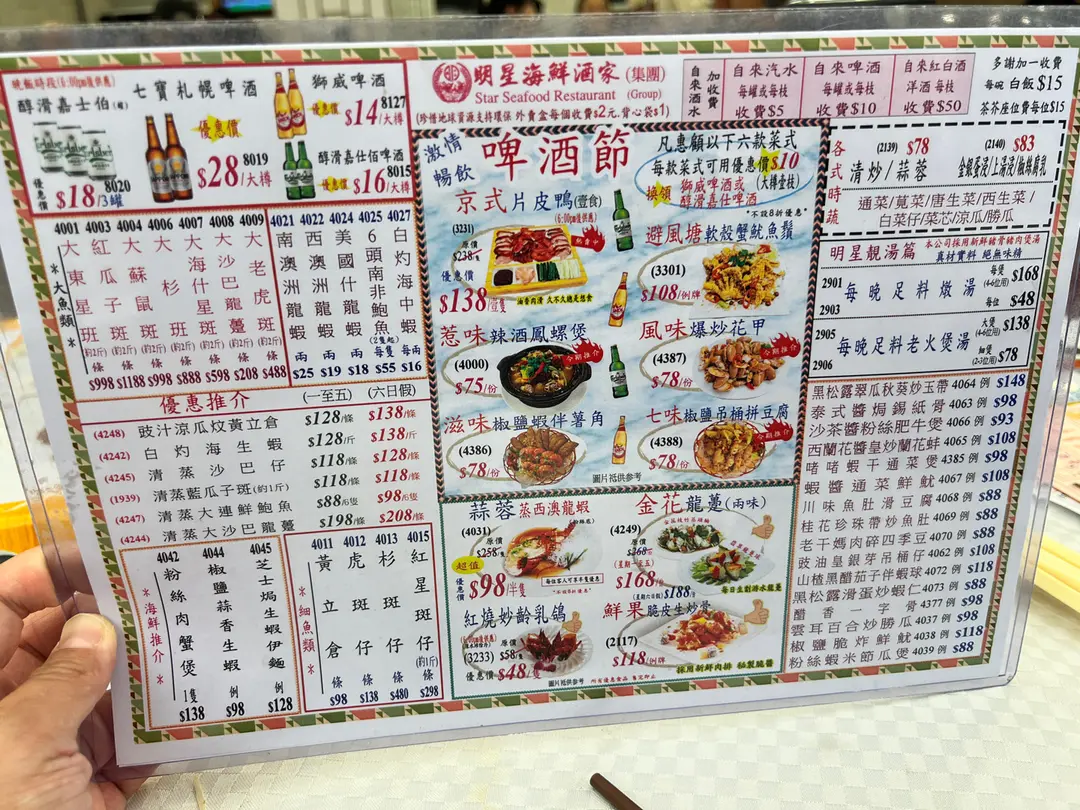 晚飯時段(6:00pm後供應)
醇滑嘉士伯(罐)
優惠價
$18/3罐 8020
七寶札幌啤酒
優惠價
$28/大樽 8019
獅威啤酒
優惠價 $14/大樽 8127
醇滑嘉仕佰啤酒
優惠價 $16/大樽 8015
明星海鮮酒家(集團)
Star Seafood Restaurant (Group)
(珍惜地球資源支持環保 外賣盒每個收費$2元,背心袋$1)
自來酒水 加收費
自來汽水 每罐或每枝 收費$5
自來啤酒 每罐或每枝 收費$10
自來紅白酒 洋酒 每枝 收費$50
多謝加一收費
每碗 白飯 $15
茶芥座位費每位$15
*大魚類*
4001 大東星斑(約2斤) 條 $998
4003 紅瓜子斑(約2斤) 條 $1188
4004 大蘇鼠斑(約2斤) 條 $998
4006 大杉斑(約2斤) 條 $888
4007 大海什斑(約2斤) 條 $598
4008 大沙巴龍躉(約2斤) 條 $208
4009 大老虎斑(約2斤) 條 $488
4021 南澳洲龍蝦 兩 $25
4022 西澳洲龍蝦 兩 $19
4024 美國什蝦 兩 $18
4025 6頭南非鮑魚(2隻起) 每隻 $55
4027 白灼海中蝦 每兩 $16
激情暢飲
啤酒節
凡惠顧以下六款菜式
每款菜式可用優惠價$10
換領 獅威啤酒或醇滑嘉仕啤酒 (大樽壹枝)
*不設8折優惠*
京式片皮鴨(壹食)
(6:00pm後供應)
(3231)
原價 $238/隻
優惠價 $138/壹隻
熱賣中
油香肉滑 久不久總是想食
避風塘軟殼蟹魷魚鬚
(3301)
$108/例牌
惹味辣酒鳳螺煲
(4000)
$75/份
今期推介
風味爆炒花甲
(4387)
$78/份
今期推介
滋味椒鹽蝦伴薯角
(4386)
$78/份
七味椒鹽吊桶拼豆腐
(4388)
$78/份
今期推介
圖片祗供參考
各式時蔬
(2139) $78
清炒/蒜蓉
(2140) $83
金銀蛋浸/上湯浸/椒絲腐乳
通菜/莧菜/唐生菜/西生菜/
白菜仔/菜芯/涼瓜/勝瓜
明星靚湯篇 本公司採用新鮮豬骨豬肉煲湯 真材實料 絕無味精
2901 每晚足料燉湯 每隻(4-6位用) $168
2903 每位 $48
2905 每晚足料老火煲湯 大煲(4-6位用) $138
2906 細煲(2-3位用) $78
優惠推介 (一至五) (六日假)
(4248) 豉汁涼瓜炆黃立倉 $128/條 $138/條
(4242) 白灼海生蝦 $128/斤 $138/斤
(4245) 清蒸沙巴仔 $118/條 $128/條
(1939) 清蒸藍瓜子斑(約1斤) $118/條 $118/條
(4247) 清蒸大連鮮鮑魚 $88/6隻 $98/6隻
(4244) 清蒸大沙巴龍躉 $198/條 $208/條
*海鮮推介*
4042 粉絲肉蟹煲 1隻 $138
4044 椒鹽蒜香生蝦 例 $98
4045 芝士焗生蝦伊麵 例 $128
*細魚類*
4011 黃立倉 條 $98
4012 虎斑仔 條 $138
4013 杉斑仔 條 $480
4015 紅星斑仔(約1斤) 條 $298
蒜蓉蒸西澳龍蝦
(粉絲底)
(4031)
原價 $258/隻
超值
優惠價 $98/半隻
每位客人可享半隻優惠
金花龍躉(兩味)
(4249)
原價 $268/條
(星期一至五)
$168/條
(星期六日假) $188/條
每日生劏游水龍躉
紅燒妙齡乳鴿
(6:00pm後供應)
(3233)
原價 $58/隻
優惠價 $48/隻
鮮果脆皮生炒骨
(2117)
$118/例牌
採用新鮮肉排 秘製脆醬
圖片祗供參考 所有優惠食品 售完即止
黑松露翠瓜秋葵炒玉帶 4064 例 $148
泰式醬焗錫紙骨 4063 例 $98
沙茶醬粉絲肥牛煲 4066 例 $93
西蘭花醬皇炒蘭花蚌 4065 例 $108
啫啫蝦干通菜煲 4385 例 $98
蝦醬通菜鮮魷 4067 例 $108
川味魚肚滑豆腐 4068 例 $88
桂花珍珠帶炒魚肚 4069 例 $88
老干媽肉碎四季豆 4070 例 $88
豉油皇銀芽吊桶仔 4062 例 $108
山楂黑醋茄子伴蝦球 4072 例 $118
黑松露滑蛋炒蝦仁 4073 例 $88
醋香一字骨 4377 例 $98
雲耳百合炒勝瓜 4037 例 $98
椒鹽脆炸鮮魷 4038 例 $118
粉絲蝦米節瓜煲 4039 例 $88